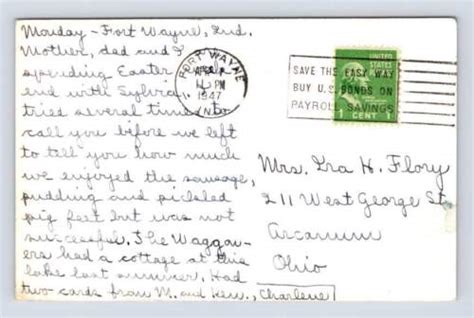 Monday - Fort Wayne, Ind.
Mother, dad and I
spending Easter
end with Sylvia.
tried several times to
call you before we left
to tell you how much
we enjoyed the sausage,
pudding and pickled
pig feet but was not
successful. The Waggon-
ers had a cottage at this
lake last summer. Had
two cards from M. and Ken.
Charlene
FORT WAYNE
APR
PM
1947
IND.
SAVE THE EASY WAY
BUY U.S. BONDS ON
PAYROLL SAVINGS
UNITED
STATES
1 CENT 1
Mrs. Ira H. Flory
211 West George St.
Arcanum
Ohio